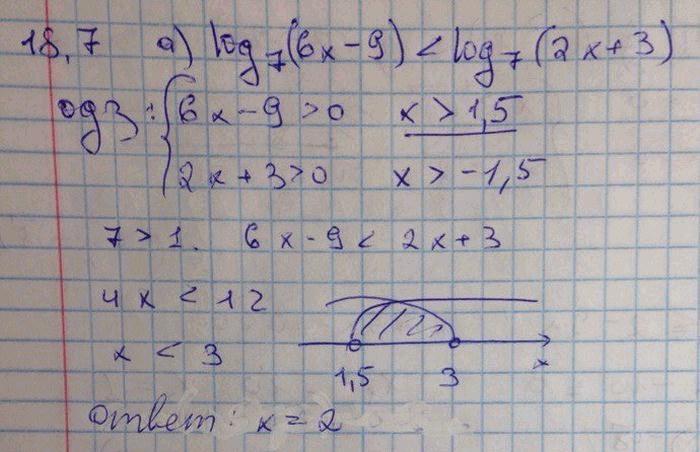 18,7 а) log₇(6x-9) < log₇(2x+3)
одз: { 6x-9>0 x>1,5
2x+3>0 x>-1,5
7>1. 6x-9< 2x+3
4x < 12
x < 3
1,5 3 x
ответ: x=2